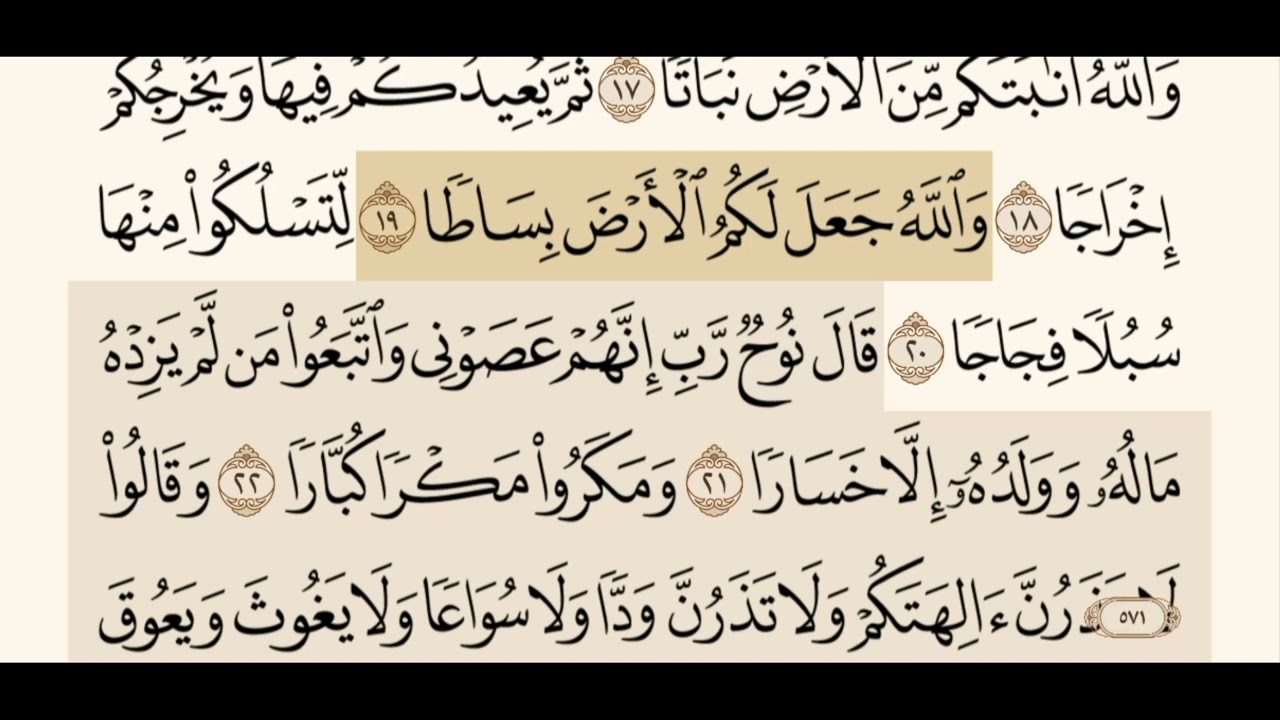 وَٱللَّهُ أَنۢبَتَكُم مِّنَ ٱلۡأَرۡضِ نَبَاتٗا ١٧ ثُمَّ يُعِيدُكُمۡ فِيهَا وَيُخۡرِجُكُمۡ
إِخۡرَاجٗا ١٨ وَٱللَّهُ جَعَلَ لَكُمُ ٱلۡأَرۡضَ بِسَاطٗا ١٩ لِّتَسۡلُكُواْ مِنۡهَا
سُبُلٗا فِجَاجٗا ٢٠ قَالَ نُوحٞ رَّبِّ إِنَّهُمۡ عَصَوۡنِي وَٱتَّبَعُواْ مَن لَّمۡ يَزِدۡهُ
مَالُهُۥ وَوَلَدُهُۥٓ إِلَّا خَسَارٗا ٢١ وَمَكَرُواْ مَكۡرٗا كُبَّارٗا ٢٢ وَقَالُواْ
لَا تَذَرُنَّ ءَالِهَتَكُمۡ وَلَا تَذَرُنَّ وَدّٗا وَلَا سُوَاعٗا وَلَا يَغُوثَ وَيَعُوقَ
٥٧١